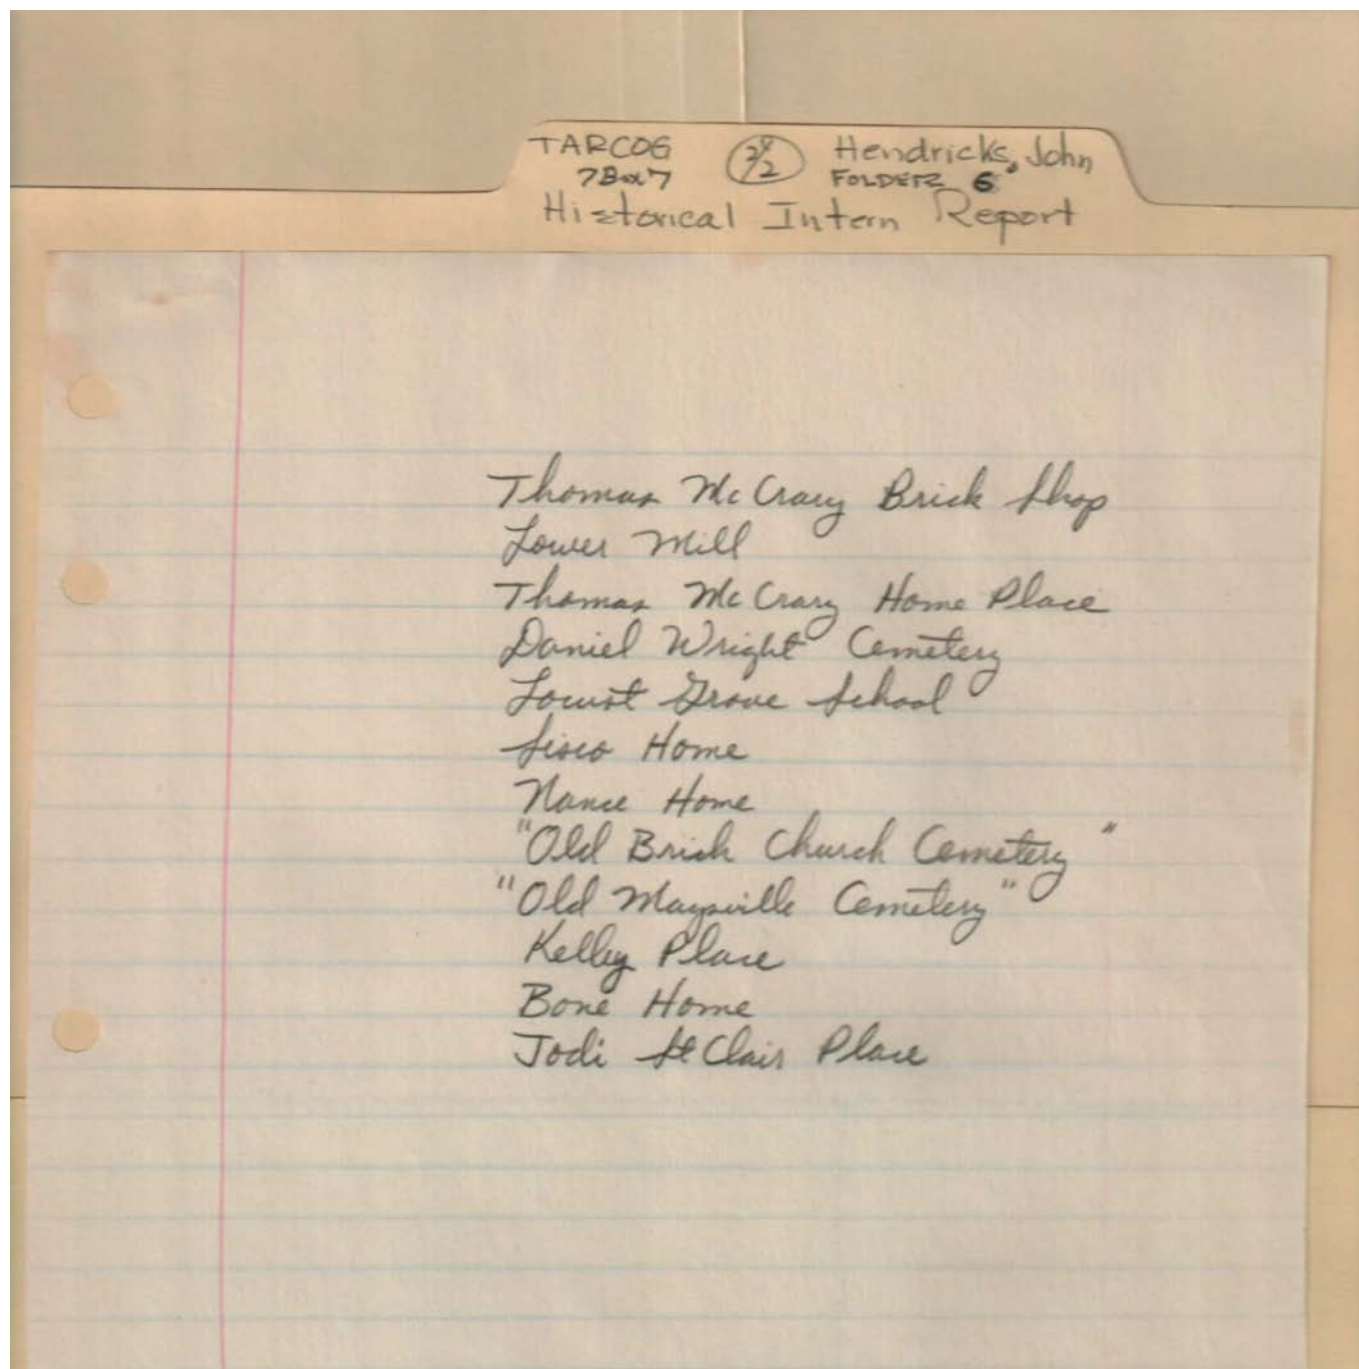 TARCOG 2/2 Hendricks, John
7Box7 FOLDER 6
Historical Intern Report
Thomas McCrary Brick Shop
Lower Mill
Thomas McCrary Home Place
Daniel Wright Cemetery
Locust Grove School
Sisco Home
Nance Home
"Old Brick Church Cemetery"
"Old Maysville Cemetery"
Kelley Place
Bone Home
Jodi St Clair Place